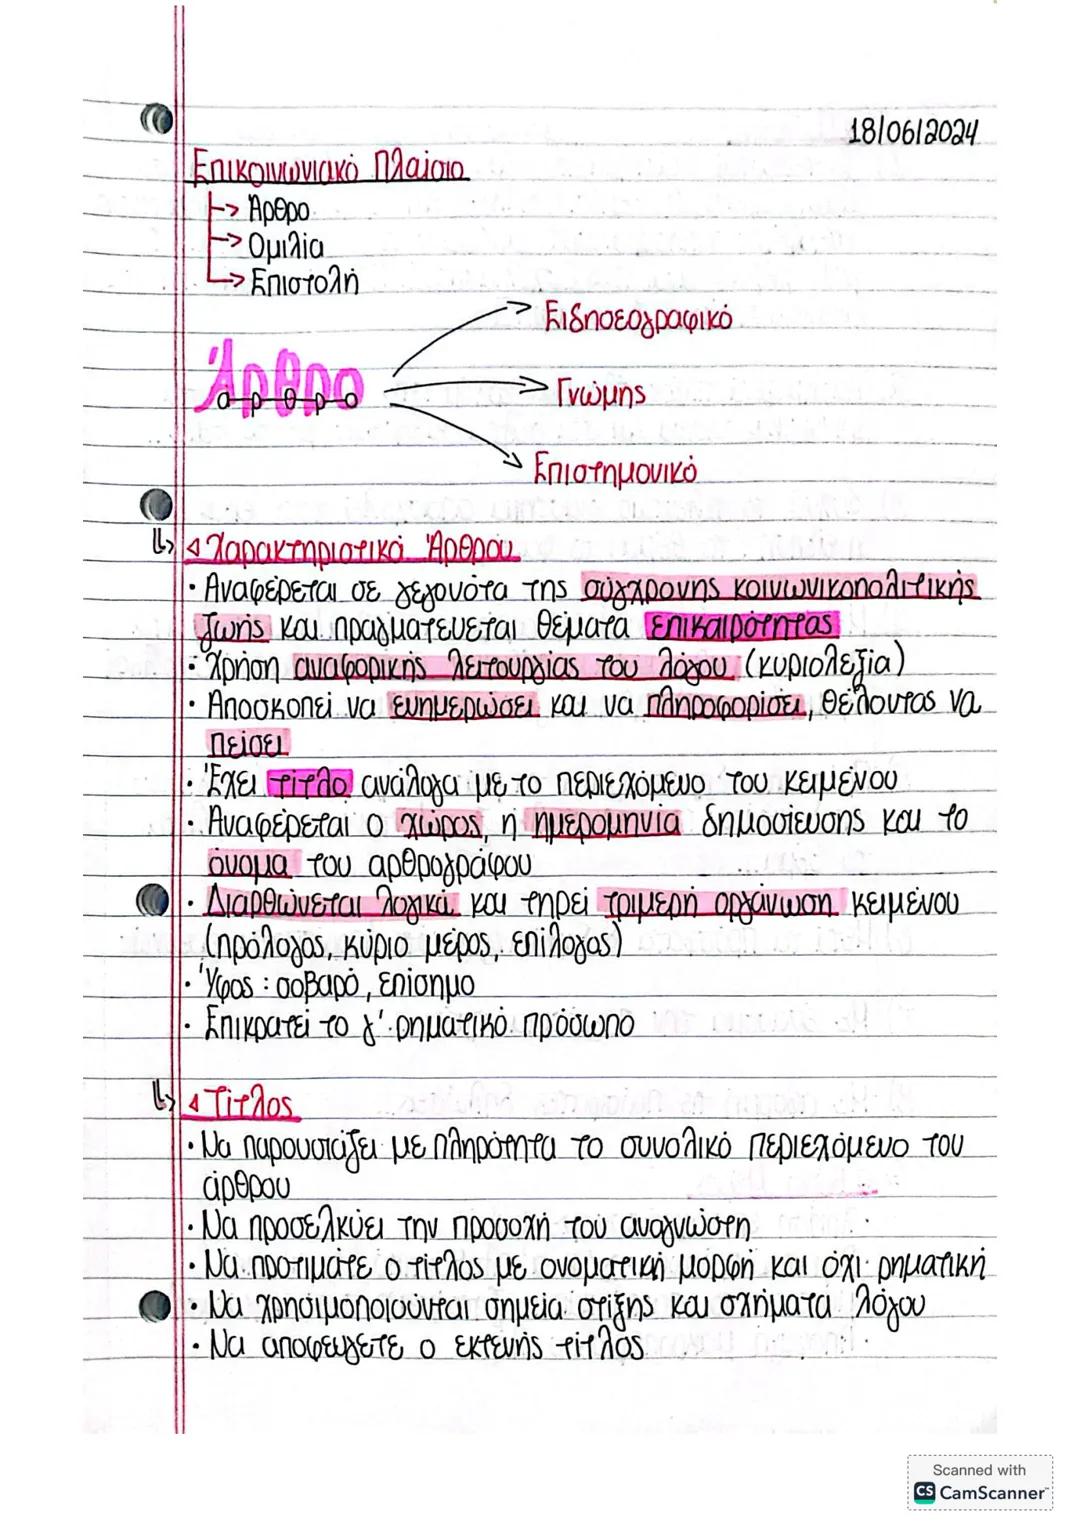 18/06/2024
Επικοινωνιακό Πλαίσιο
-> Άρθρο
-> Ομιλία
-> Επιστολή
Ειδησεογραφικό
Άρθρο
άρθρο
Γνώμης
Επιστημονικό
Χαρακτηριστικά Άρθρου
· Αναφέρεται σε γεγονότα της σύγχρονης κοινωνικοπολιτικής
ζωής και πραγματευεται θέματα επικαιρότητας
· Χρήση αναφορικής λειτουργίας του λόγου (κυριολεξία)
· Αποσκοπεί να ενημερώσει και να πληροφορίσει, θέλοντας να
πείσει
· Έχει τίτλο ανάλογα με το περιεχόμενο του κειμένου
· Αναφέρεται ο χώρος, η ημερομηνία δημοσίευσης και το
όνομα του αρθρογράφου
· Διαρθώνεται λογικά και τηρεί τριμερή οργάνωση κειμένου
(πρόλογος, κύριο μέρος, επίλογος)
· Ύφος : σοβαρό, επίσημο
· Επικρατεί το γ' ρηματικό πρόσωπο
Τίτλος
· Να παρουσιάζει με πληρότητα το συνολικό περιεχόμενο του
άρθρου
· Να προσελκύει την προσοχή του αναγνώστη
· Να προτιμάτε ο τίτλος με ονοματική μορφή και όχι ρηματική
· Να χρησιμοποιούνται σημεία στίξης και σχήματα λόγου
· Να αποφευγετε ο εκτενής τίτλος
Scanned with
CS CamScanner